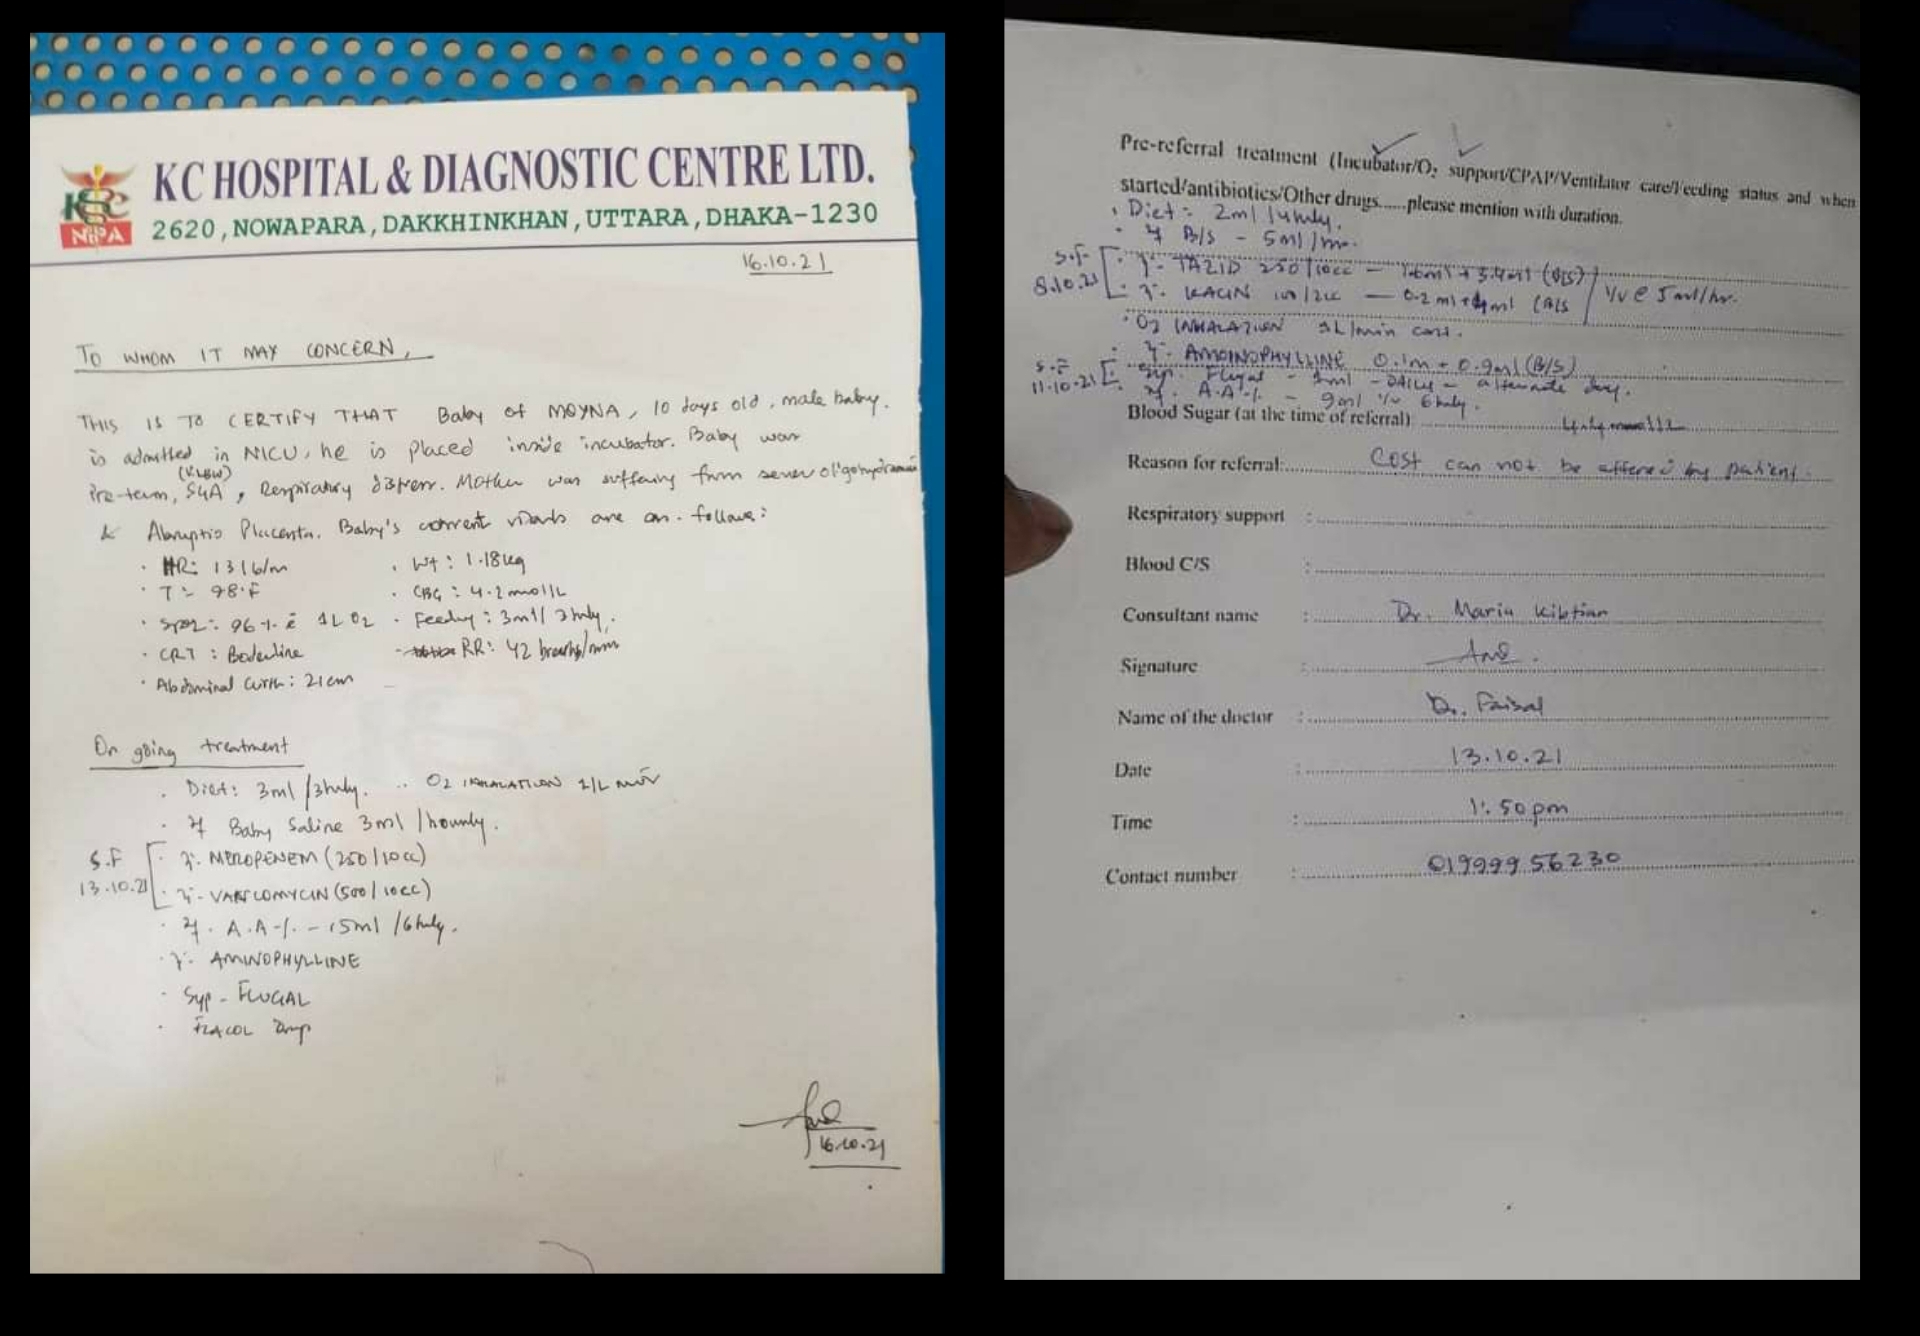 KC HOSPITAL & DIAGNOSTIC CENTRE LTD.
NIPA
2620, NOWAPARA, DAKKHINKHAN, UTTARA, DHAKA-1230
16.10.21
TO WHOM IT MAY CONCERN,
THIS IS TO CERTIFY THAT Baby of MOYNA, 10 days old, male baby.
is admitted in NICU, he is placed inside incubator. Baby was
(VLBW)
Pre-term, SGA, Respiratory distress. Mother was suffering from sever
& Abruptio Placenta. Baby's current vitals are as follows:
HR: 131 b/m
Wt: 1.18 kg
T: 98°F
CBG: 4.2 mmol/L
SPO2: 96% c̄ 1L O2
Feeding: 3ml/
CRT: Boderline
RR: 42 breaths/min
Abdominal Girth: 21cm
On going treatment
Diet: 3ml /3hrly.
O2 INHALATION
Baby Saline 3ml /hourly.
S.F
13.10.21
MEROPENEM (250/10cc)
VANCOMYCIN (500/10cc)
A.A-/. - 15ml /6hrly.
AMINOPHYLLINE
Syp - FLUGAL
16.10.21
Pre-referral treatment (Incubator/O2 support/CPAP/Ventilator care/Feeding status and when
started/antibiotics/Other drugs......please mention with duration.
Diet: 2ml /4hrly.
B/S - 5ml/hr.
S.F
8.10.21
TAZID 250/10cc - (B/S)
KACIN 100/2cc - 0.2ml+4ml (B/S
I/V @ 5ml/hr.
O2 INHALATION 1L/min cont.
S.F
11.10.21
AMOINOPHYLLINE 0.1m + 0.9ml (B/S)
Syp. Flugal - 1ml - DAILY - alternate day.
A.A-/. - 9ml I/V 6hrly.
Blood Sugar (at the time of referral)
Reason for referral: Cost can not be by patient.
Respiratory support :
Blood C/S :
Consultant name : Dr. Maria Kibtian
Signature :
Name of the doctor : Dr. Faisal
Date : 13.10.21
Time : 1:50 pm
Contact number : 01999956230